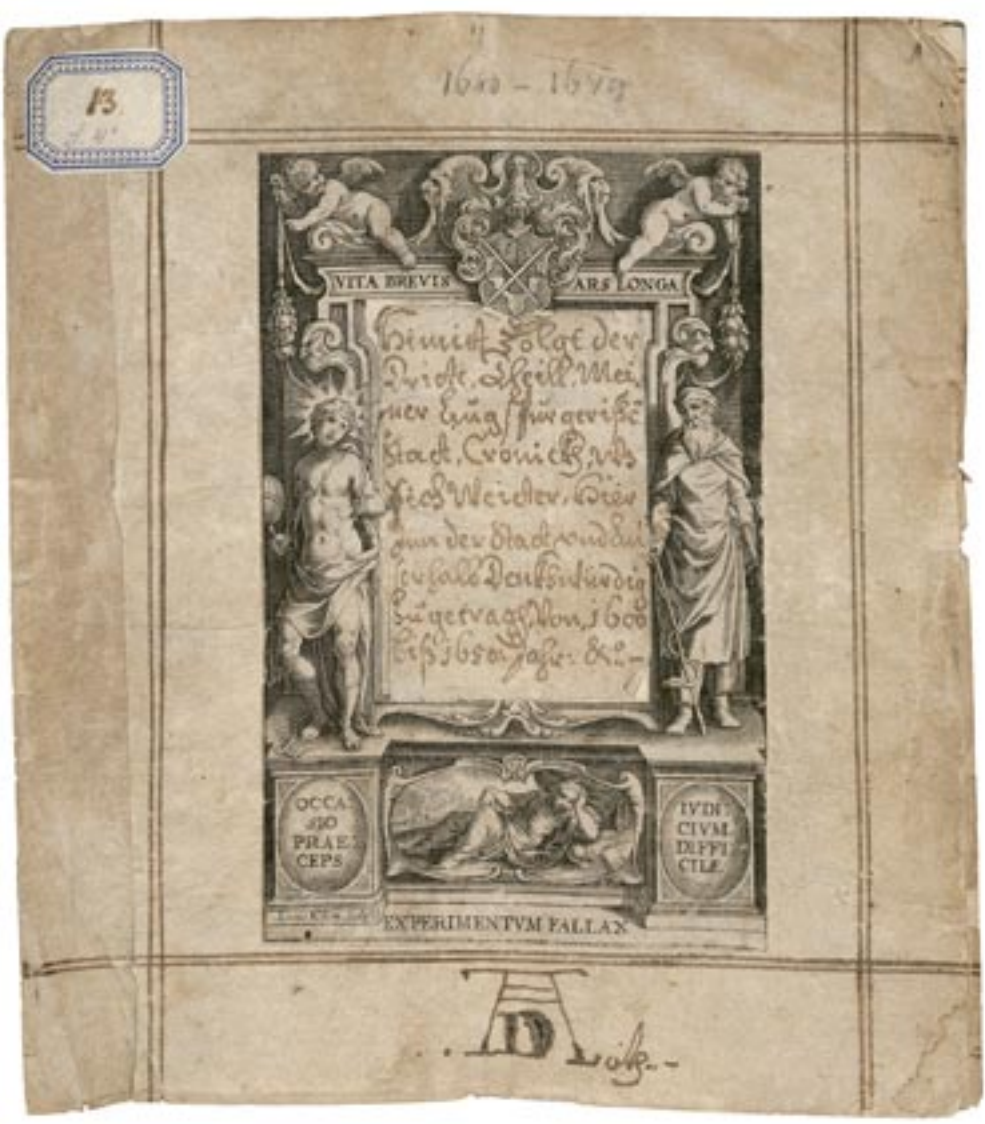 13
1600 - 1649
VITA BREVIS ARS LONGA
Hemit Folgt der
Dritte, Theill, Mei,
ner Augspurgerische
Stadt, Cronickh, was
sich Weitter, Hier
jnn der Stadt vnd Au
serhalb Denckwürdig
Zugetrage, Von, 1600
biß 1650 Jahr: &c:-
OCCA:
SIO
PRAE:
CEPS
IVDI:
CIVM
DIFFI
CILE
EXPERIMENTVM FALLAX
AD